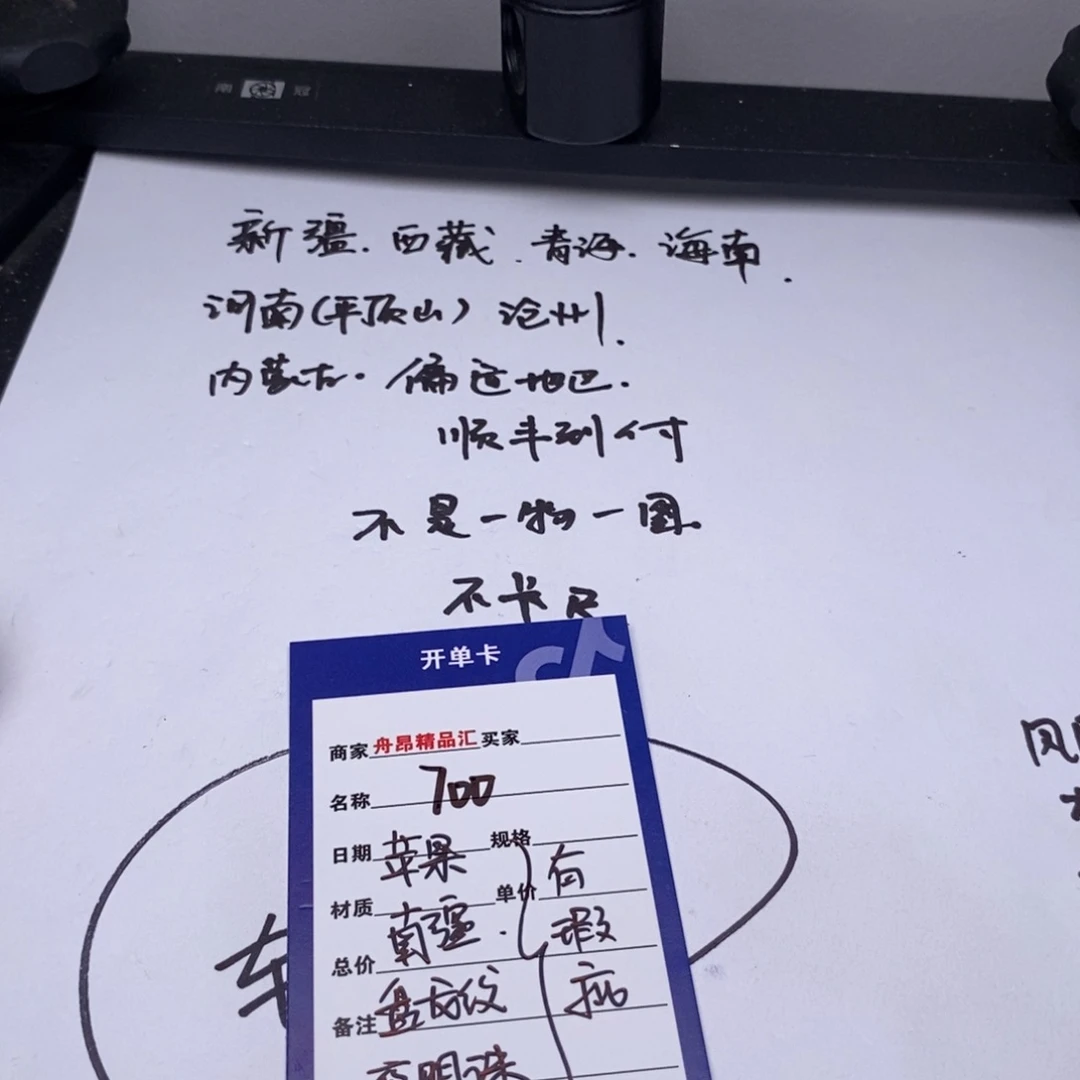 南 冠
新疆.西藏.青海.海南.
河南(平顶山)沧州.
内蒙古.偏远地区.
顺丰到付
不是一物一图.
不卡尺
开单卡
商家 舟昂精品汇 买家
名称 700
日期 苹果 规格
材质 南疆. 单价 有
总价 盘龙纹 瑕
备注 夜明珠 疵
车
风